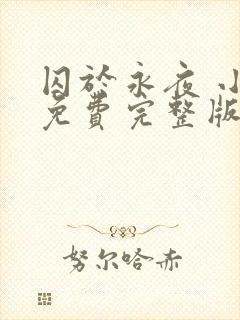 囚於永夜 小
免費完整版
努尔哈赤